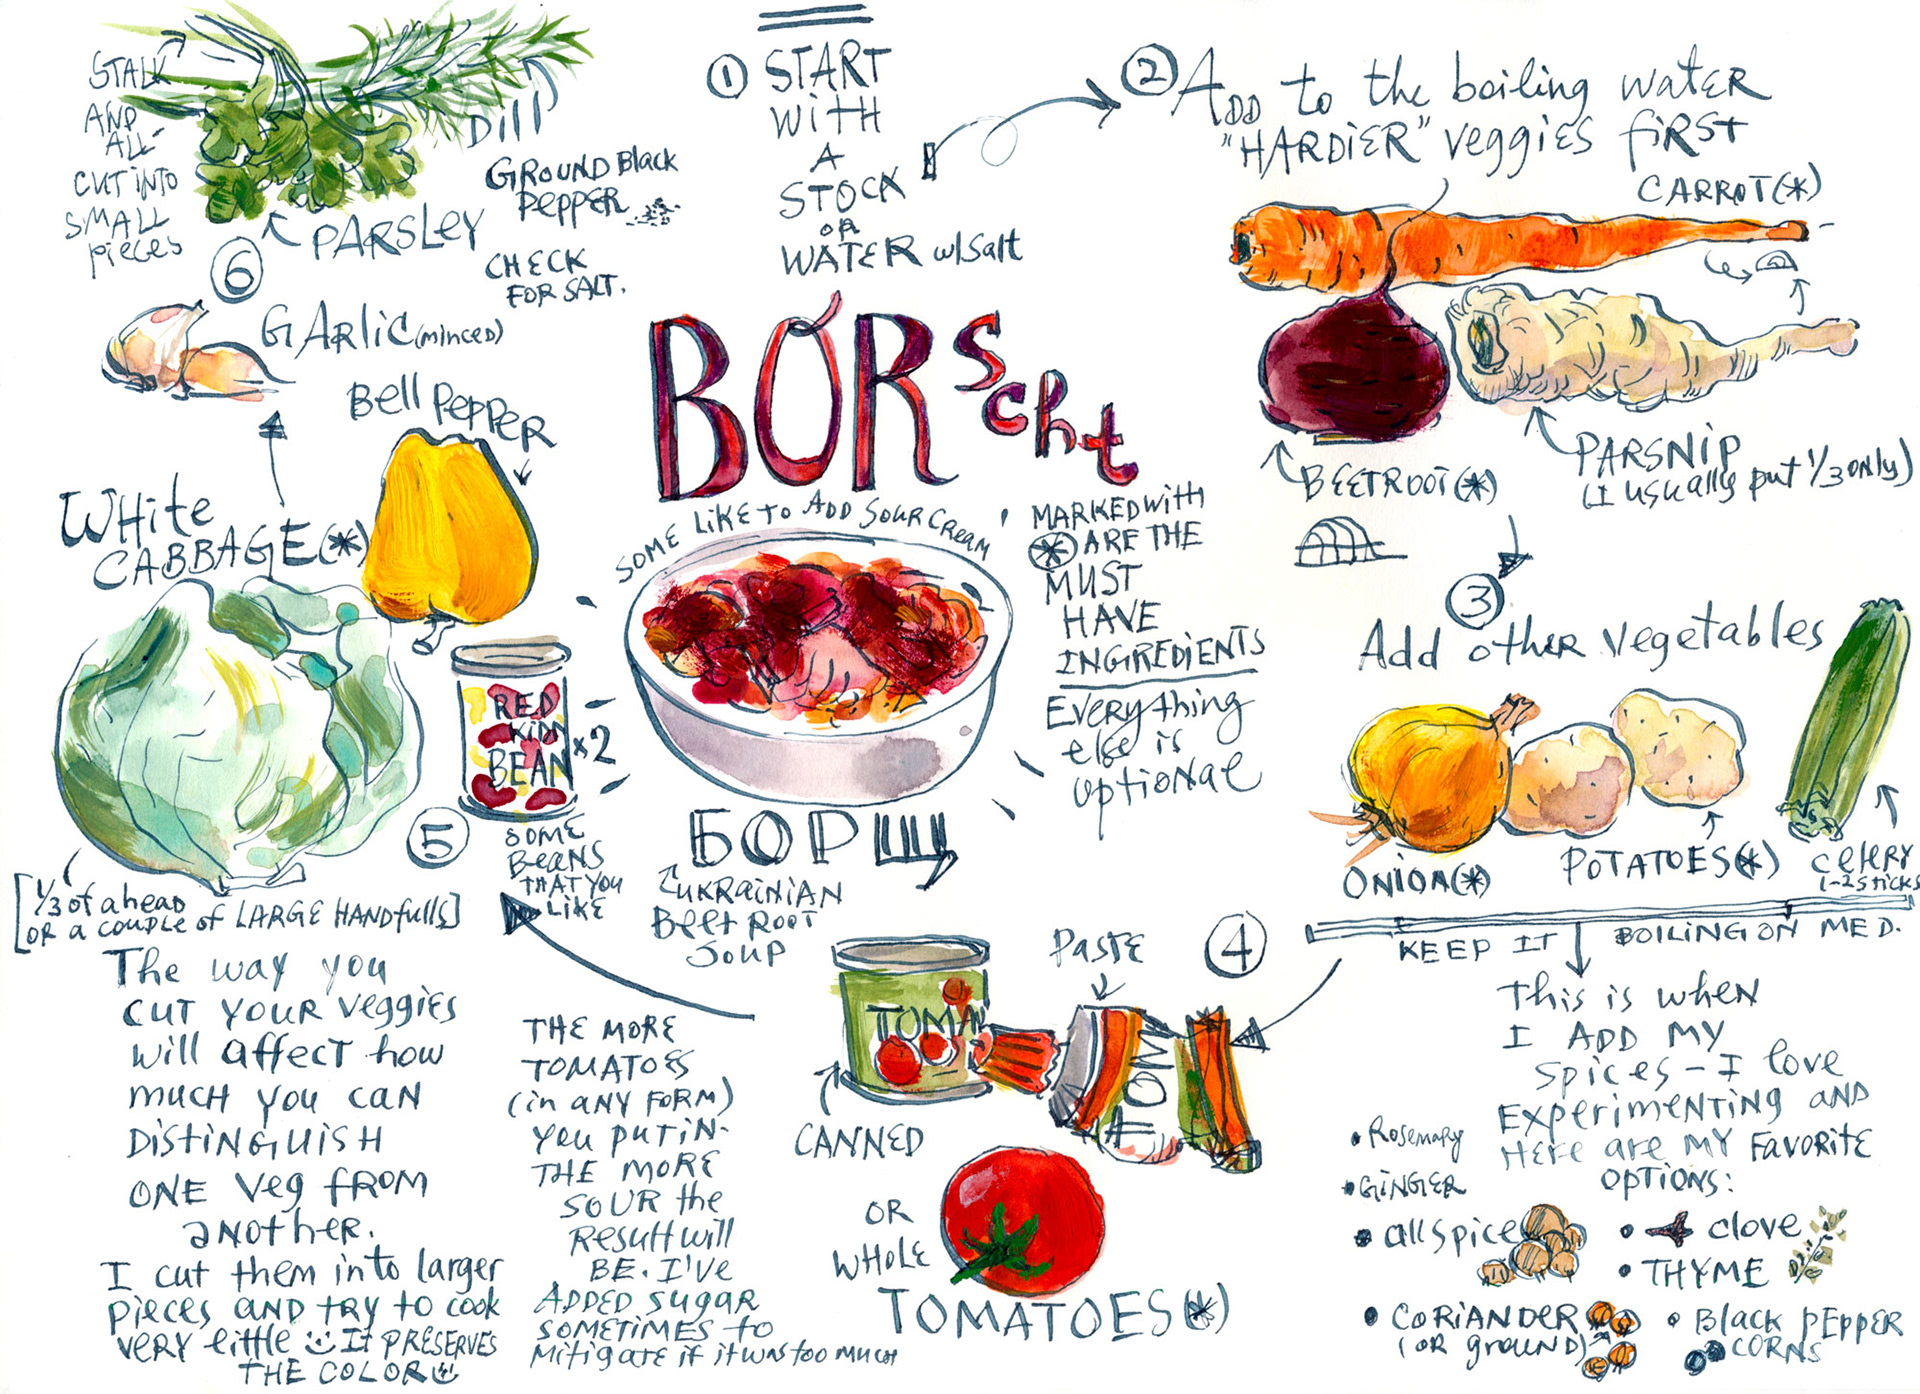 ① START
WITH
A
STOCK
OR
WATER w/Salt
② ADD to the boiling WATER
"HARDIER" veggies first
CARROT(*)
BEETROOT(*)
PARSNIP
(I usually put 1/3 only)
③
Add other vegetables
ONION(*)
POTATOES(*)
CELERY
1-2 STICKS
KEEP IT BOILING ON MED.
This is when
I ADD MY
Spices - I love
EXPERIMENTING AND
HERE ARE MY FAVORITE
OPTIONS:
• Rosemary
• GINGER
• allspice
• clove
• THYME
• CORIANDER
(OR ground)
• Black pEpper
CORNS
④
PASTE
TOMA
TOM
CANNED
OR
WHOLE
TOMATOES(*)
THE MORE
TOMATOES
(in ANY FORM)
you PUT IN-
THE MORE
SOUR the
Result will
BE. I'VE
ADDED SUgAR
SOMETIMES to
MitigATE if it was too much
⑤
White
CABBAGE(*)
Bell PEPPER
RED
KIDN
BEAN
x2
SOME
BEANS
THAT YOU
LIKE
[1/3 of a head
OR a couple of LARGE HANDfulls]
The way you
CUT YOUR veggies
will affect how
much you can
DISTINGUISH
ONE Veg FROM
another.
I cut them into larger
pieces AND try to cook
VERY little It PRESERVES
THE COLOR
⑥
GARlic (minced)
STALK
AND
ALL-
CUT INTO
SMALL
pieces
PARSLEY
Dill
GROUND Black
PEPPER
CHECK
FOR SALT.
BORscht
SOME LIKE TO ADD SOUR CREAM
MARKED with
(*) ARE THE
MUST
HAVE
INGREDIENTS
Everything
else is
optional
БОРЩ
UKRAINIAN
BEET ROOT
SOUP